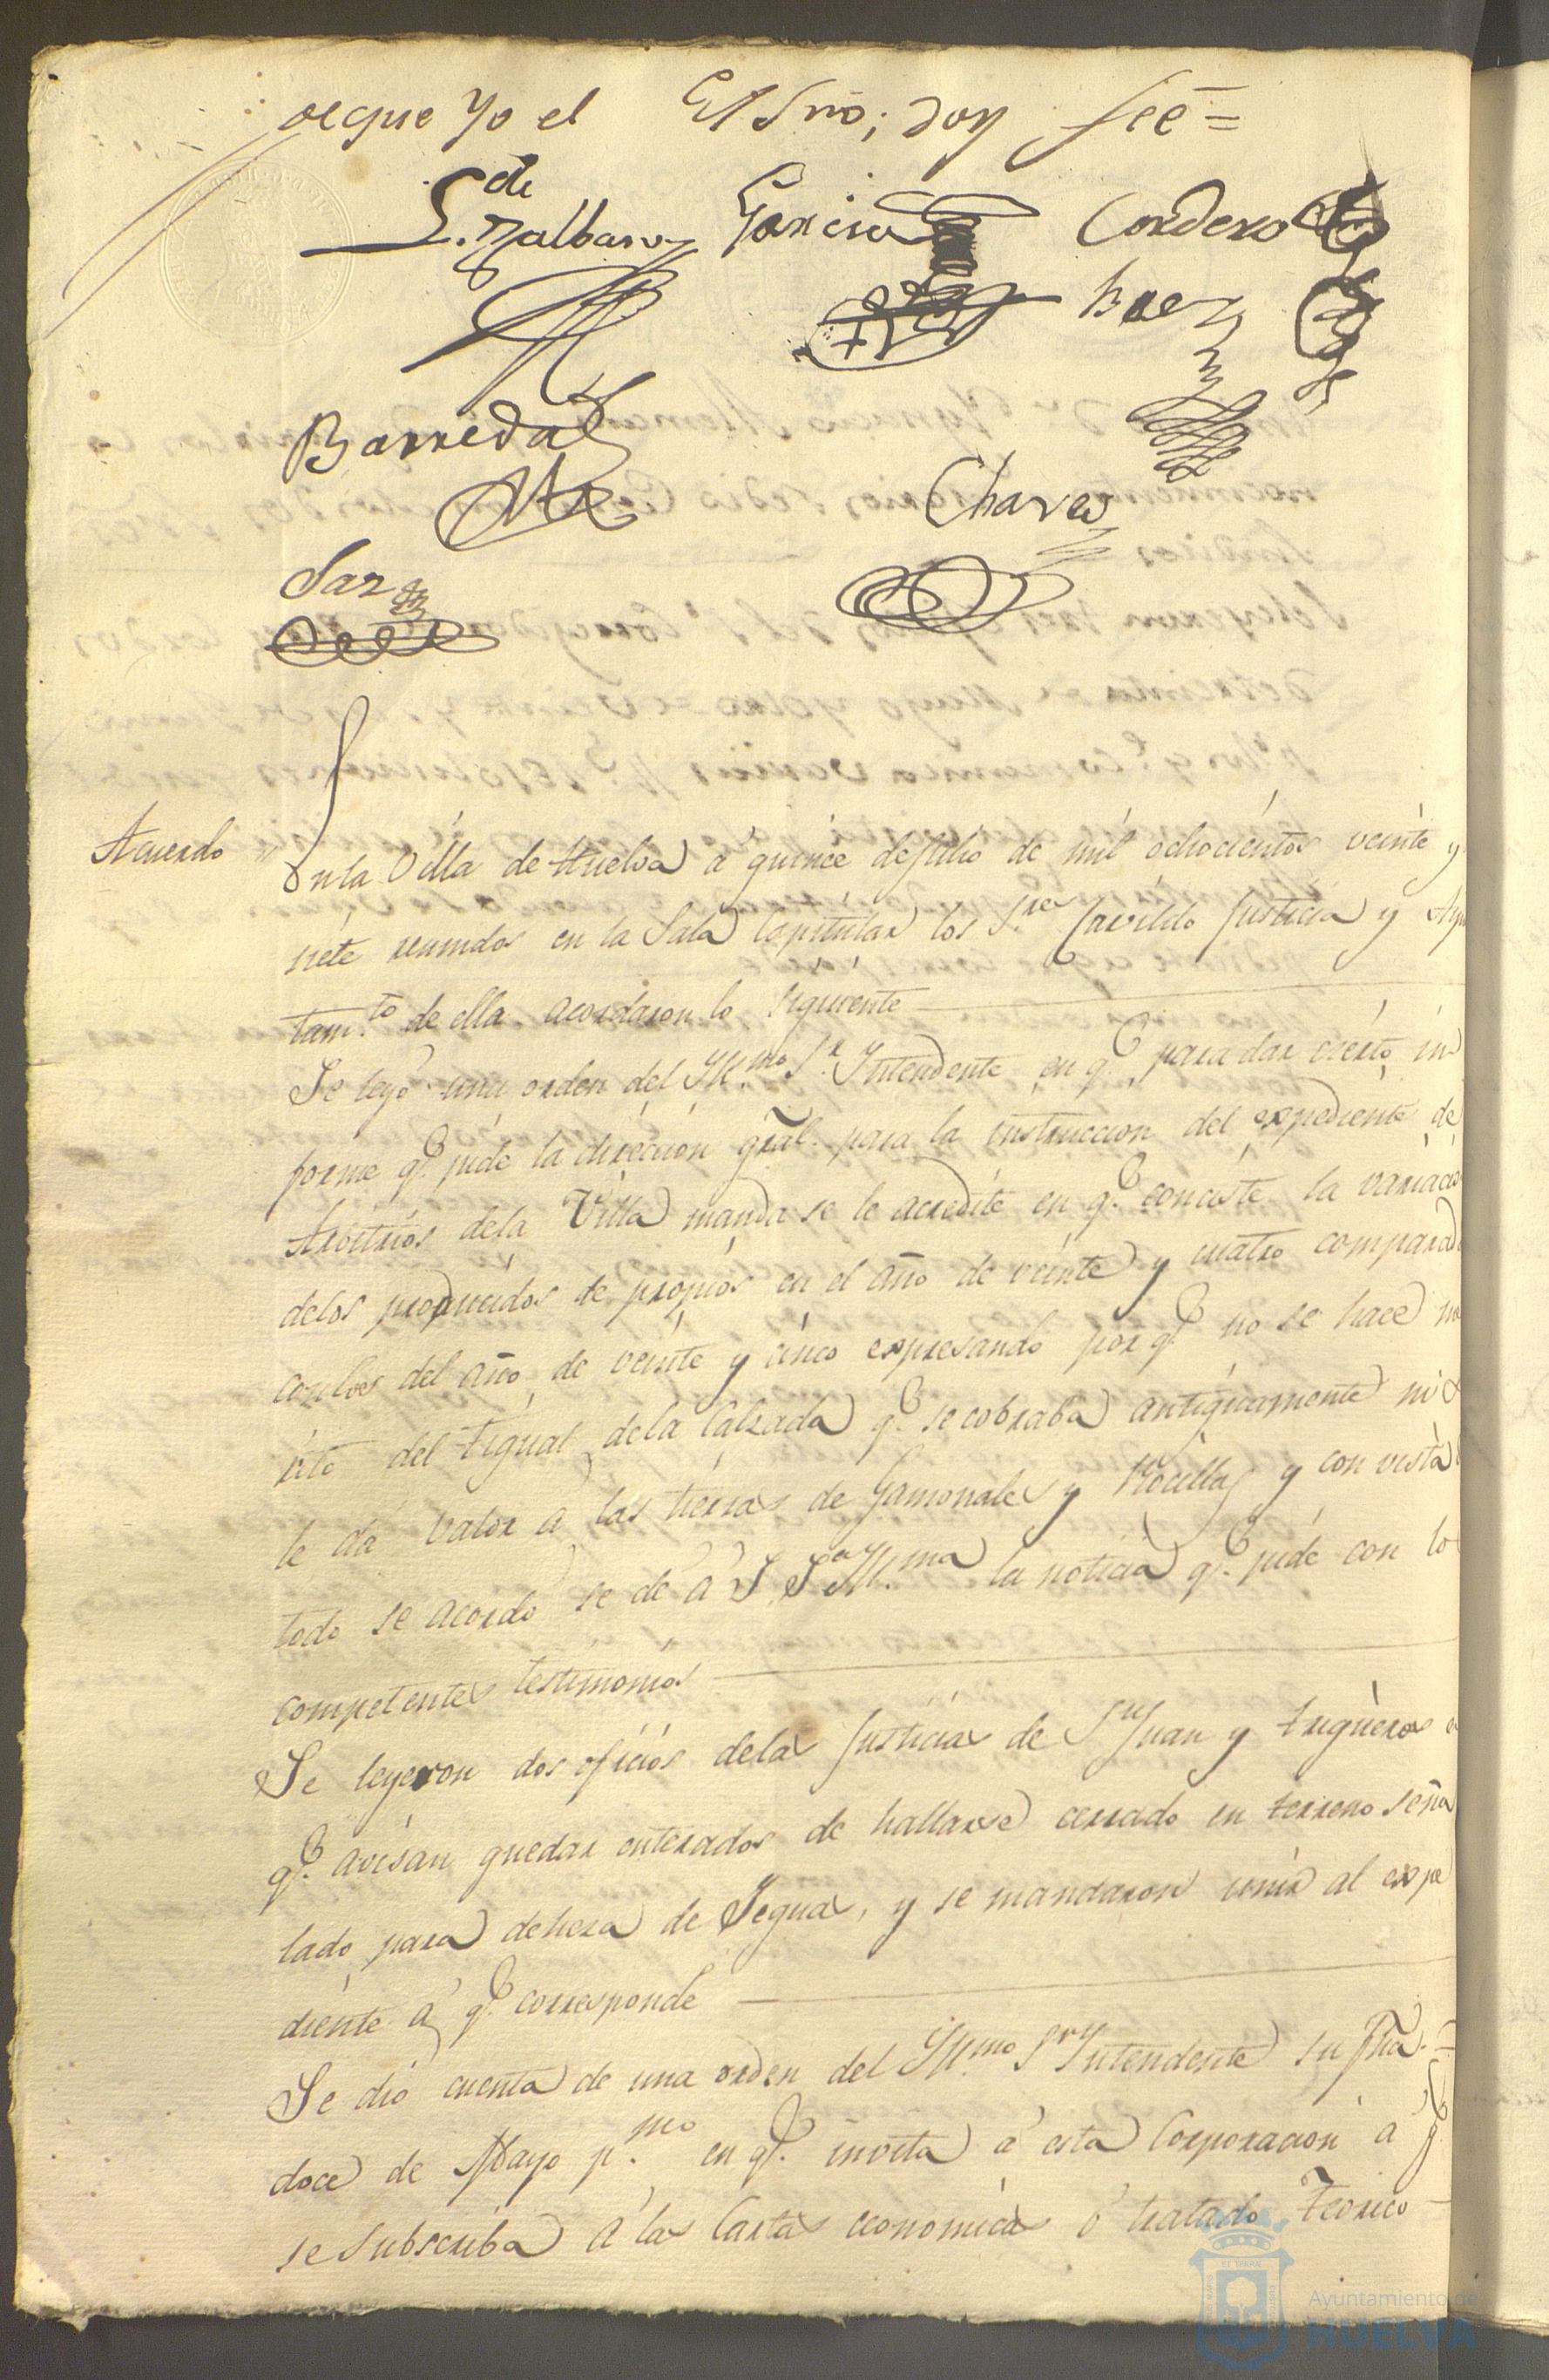 de que Yo el Essno; doy feé =
S. de Malbar Garcia Cordero
Baez
Barreda
Chaves
Saz
Acuerdo " En la Villa de Huelva á quince de Julio de mil ochocientos veinte y
siete reunidos en la Sala Capitular los S.res Cavildo Justicia y Ayun
tam.to de ella acordaron lo siguiente
Se leyó una orden del Yll.mo S.r Yntendente en q.e para dar cierto in
forme q.e pide la direccion gral. para la instruccion del expediente de
Arbitrios dela Villa manda se le acredite en q.e conciste la variacio
delos producidos de propios en el año de veinte y cuatro comparado
con los del año de veinte y cinco expresando por q.e no se hace me
rito del tigual dela Calzada q.e se cobraba antiguamente ni se
le da valor a las tierras de Gamonales y Rocillas y con vista d
todo se acordó se dé á S. S.a Yll.ma la noticia q.e pide con lo
competentes testimonios
Se leyeron dos oficios delas Justicias de S.n Juan y Trigueros en
q.e avisan quedar enterados de hallarse cerrado en terreno seña
lado para deheza de Yeguas, y se mandaron unir al expe
diente á q.e corresponde
Se dió cuenta de una orden del Yll.mo S.r Yntendente su fha.
doce de Mayo p.mo en q.e invita á esta Corporacion á q.e
se subscriba á las Cartas economicas ó tratado Teorico
Ayuntamiento de
HUELVA